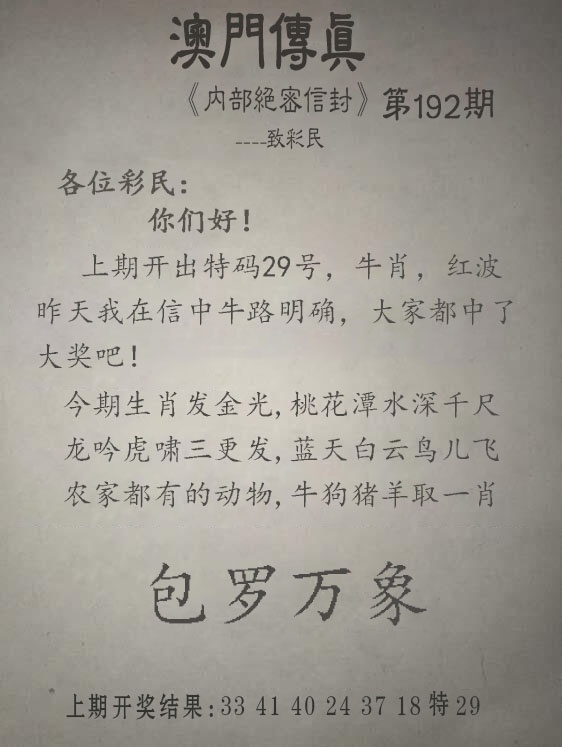 澳門傳真
《内部絕密信封》第192期
----致彩民
各位彩民：
你们好！
上期开出特码29号，牛肖，红波
昨天我在信中牛路明确，大家都中了
大奖吧！
今期生肖发金光,桃花潭水深千尺
龙吟虎啸三更发,蓝天白云鸟儿飞
农家都有的动物,牛狗猪羊取一肖
包罗万象
上期开奖结果:33 41 40 24 37 18 特 29